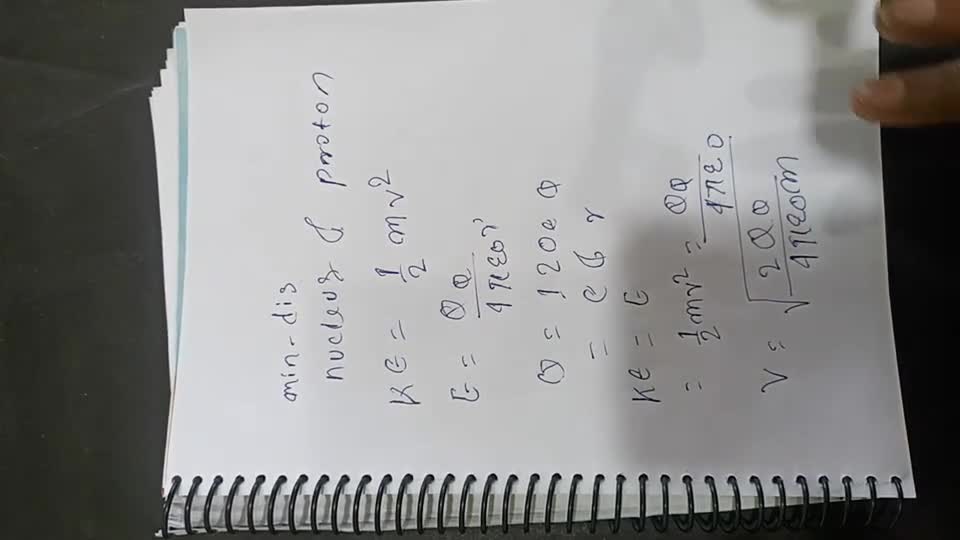 min-dis
nucleus & proton
KE = 1/2 mv²
E = QQ/4πε0r
Q = 120e Q
= e & r
KE = E
= 1/2 mv² = QQ/4πε0
V = √(2QQ/4πε0m)